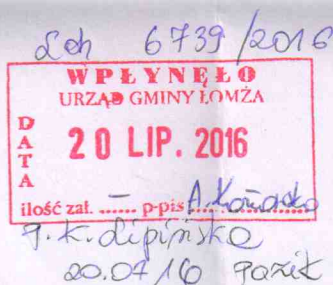 6739/2016
WPŁYNĘŁO
URZĄD GMINY ŁOMŻA
DATA
20 LIP. 2016
ilość zał. ...... – p-pis
K. Lipińska
20.07.16